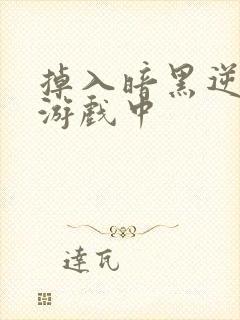 掉入暗黑逆
游戏中
達瓦